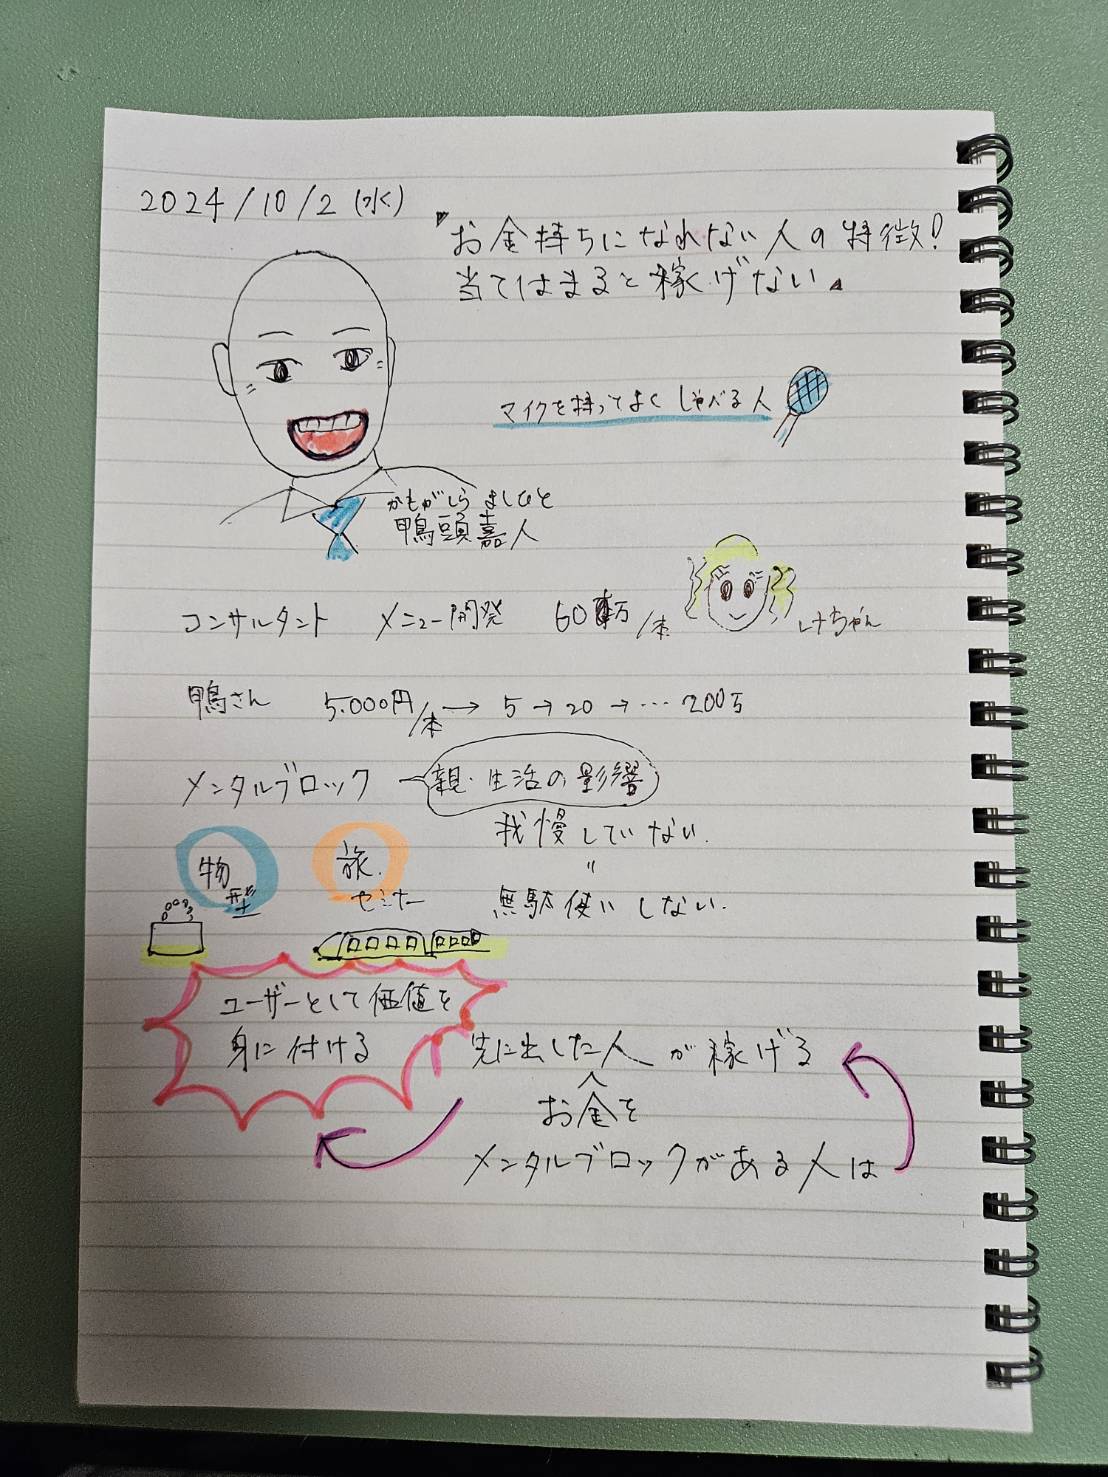 2024/10/2(水)
『お金持ちになれない人の特徴!
当てはまると稼げない』
マイクを持ってよくしゃべる人
かもがしら よしひと
鴨頭嘉人
コンサルタント メニュー開発 60万/本 けちゃん
鴨さん 5.000円/本→ 5→20→…200万
メンタルブロック 親・生活の影響
我慢していない.
〃
無駄使いしない.
物型
旅.
セミナー
ユーザーとして価値を
身に付ける
先に出した人が稼げる
お金を
メンタルブロックがある人は